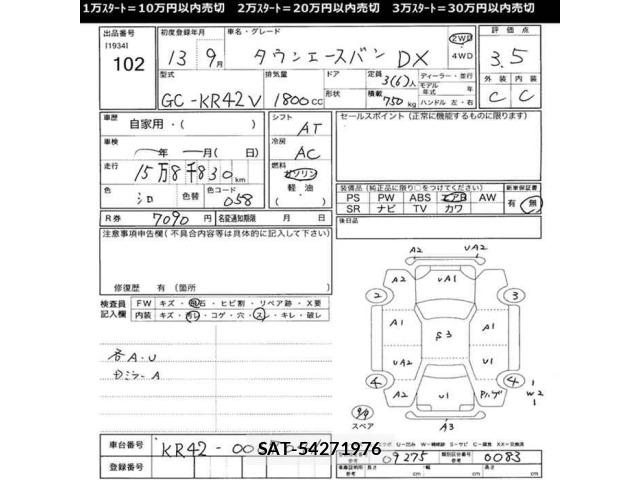 1万スタート=10万円以内売切 2万スタート=20万円以内売切 3万スタート=30万円以内売切
出品番号 初度登録年月 車名・グレード 評価点
[1934] 13 9月 タウンエースバン DX 2WD 4WD 3.5
102
型式 排気量 ドア 定員 3(6)人 ディーラー・並行 外装 内装
GC-KR42V 1800cc 形状 積載 750kg モデル年式 年 ハンドル 左・右 C C
車歴 自家用・( ) シフト AT セールスポイント(正常に機能するものに限ります)
車検 年 月(日) 冷房 AC
走行 15万8千830km 燃料 ガソリン
軽油
( )
色 シロ 色替 色コード 058
装備品(純正品に限り○をつけてください) 新車保証書
PS PW ABS エアB AW 有 無
SR ナビ TV カワ
R券 7090円 名変通知期限 月 日 後日品
注意事項申告欄(不具合内容等は具体的に記入して下さい)
修復歴 有(箇所 )
検査員記入欄 FW キズ・飛石・ヒビ割・リペア跡・X要
内装 キズ・汚レ・コゲ・穴・スレ・キレ・破レ
各A・U
Dミラー A
A2 UA2
A2 UA1
2 3
A1 S3 A1
UA2 U1
4 4
A2 U1 Pハゲ
W2
スペア A3
車台番号 KR42-00
SAT-54271976
登録番号
09275 類別区分番号 0083
長さ cm 幅 cm 高さ cm